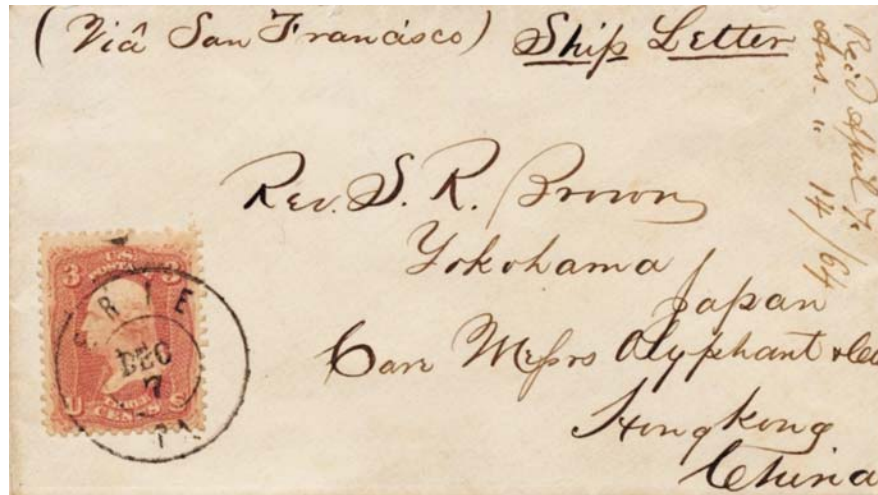 (Viâ San Francisco) Ship Letter
Rec'd April 7.
Ans. " 14/64
Rev. S. R. Brown
Yokohama
Japan
Care Messrs Olyphant & Co
Hongkong
China
3 U.S. 3
POSTAGE
U THREE S
CENTS
ERIE
DEC
7
PA